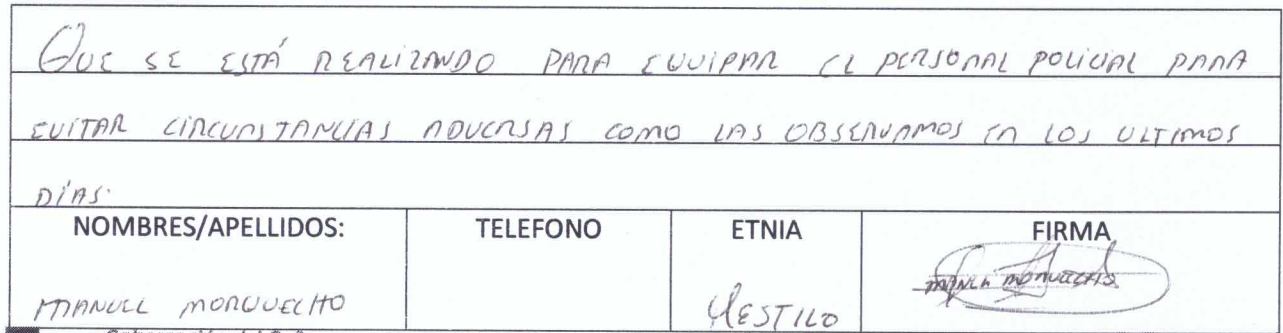 QUE SE ESTÁ REALIZANDO PARA EQUIPAR EL PERSONAL POLICIAL PARA
EVITAR CIRCUNSTANCIAS ADVERSAS COMO LAS OBSERVAMOS EN LOS ULTIMOS
DÍAS.
NOMBRES/APELLIDOS: TELEFONO ETNIA FIRMA
MANUEL MOROCHO MESTIZO